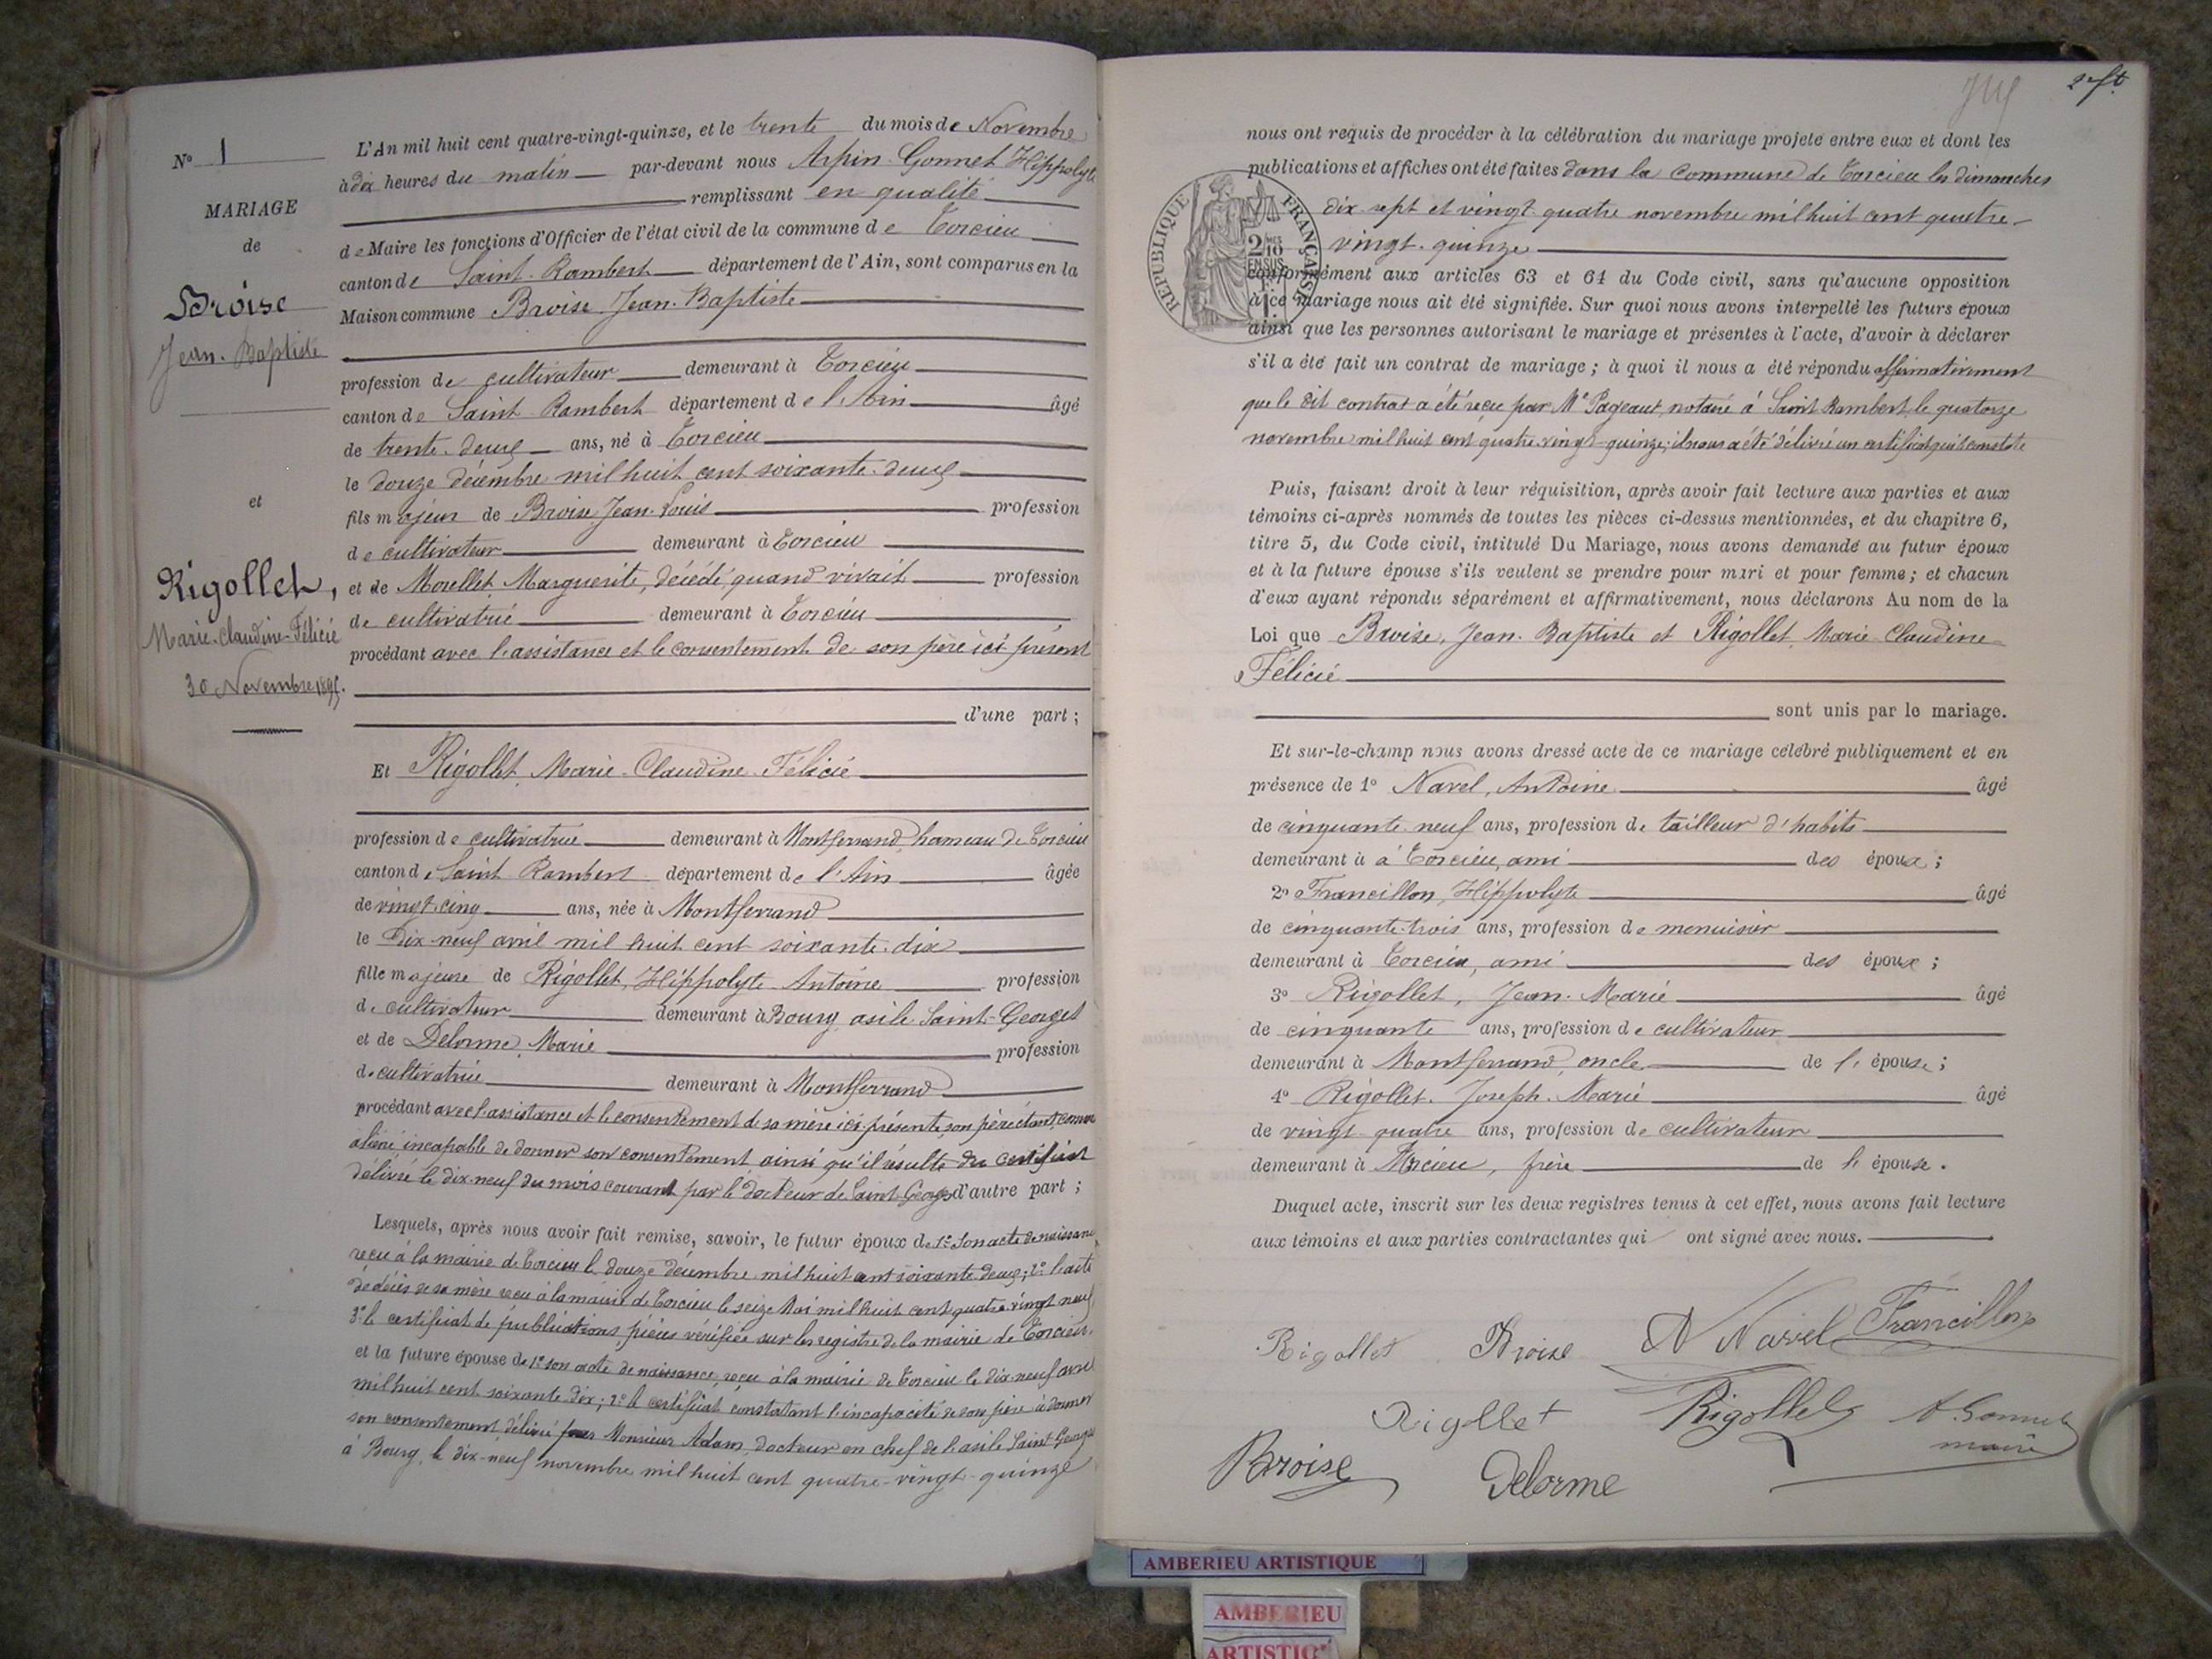 N° 1
MARIAGE
de
Broise
Jean-Baptiste
et
Rigollet,
Marie-Claudine-Félicie
30 Novembre 1895.
L'An mil huit cent quatre-vingt-quinze, et le trente du mois de Novembre
à dix heures du matin par-devant nous Arpin-Gonnet Hippolyte
remplissant en qualité
de Maire les fonctions d'Officier de l'état civil de la commune de Torcieu
canton de Saint-Rambert département de l'Ain, sont comparus en la
Maison commune Broise Jean-Baptiste
profession de cultivateur demeurant à Torcieu
canton de Saint-Rambert département de l'Ain âgé
de trente-deux ans, né à Torcieu
le douze décembre mil huit cent soixante-deux
fils majeur de Broise Jean-Louis profession
de cultivateur demeurant à Torcieu
et de Morellet Marguerite, décédé, quand vivait profession
de cultivatrice demeurant à Torcieu
procédant avec l'assistance et le consentement de son père ici présent
d'une part ;
Et Rigollet, Marie-Claudine-Félicie
profession de cultivatrice demeurant à Montferrand, hameau de Torcieu
canton de Saint Rambert département de l'Ain âgée
de vingt-cinq ans, née à Montferrand
le dix-neuf avril mil huit cent soixante-dix
fille majeure de Rigollet, Hippolyte-Antoine profession
de cultivateur demeurant à Bourg, asile Saint-Georges
et de Delorme, Marie profession
de cultivatrice demeurant à Montferrand
procédant avec l'assistance et le consentement de sa mère ici présente, son père étant, comme
aliéné, incapable de donner son consentement, ainsi qu'il résulte du certificat
délivré le dix-neuf du mois courant par le docteur de Saint-Georges d'autre part ;
Lesquels, après nous avoir fait remise, savoir, le futur époux de 1° son acte de naissance
reçu à la mairie de Torcieu le douze décembre mil huit cent soixante-deux ; 2° l'acte
de décès de sa mère reçu à la mairie de Torcieu le seize Mai mil huit cent quatre-vingt neuf
3° le certificat de publications pièces vérifiées sur les registre de la mairie de Torcieu.
et la future épouse de 1° son acte de naissance, reçu à la mairie de Torcieu le dix-neuf avril
mil huit cent soixante-dix ; 2° le certificat constatant l'incapacité de son père à donner
son consentement délivré par Monsieur Adam, docteur en chef de l'asile Saint-Georges
à Bourg, le dix-neuf novembre mil huit cent quatre-vingt-quinze
nous ont requis de procéder à la célébration du mariage projeté entre eux et dont les
publications et affiches ont été faites dans la commune de Torcieu les dimanches
dix-sept et vingt-quatre novembre mil huit cent quatre-
vingt-quinze
RÉPUBLIQUE FRANÇAISE
2/10 EN SUS
conformément aux articles 63 et 64 du Code civil, sans qu'aucune opposition
à ce mariage nous ait été signifiée. Sur quoi nous avons interpellé les futurs époux
ainsi que les personnes autorisant le mariage et présentes à l'acte, d'avoir à déclarer
s'il a été fait un contrat de mariage ; à quoi il nous a été répondu affirmativement
que le dit contrat a été reçu par Me Pageaut, notaire à Saint Rambert, le quatorze
novembre mil huit cent quatre-vingt-quinze ; il nous a été délivré un certificat qui le constate
Puis, faisant droit à leur réquisition, après avoir fait lecture aux parties et aux
témoins ci-après nommés de toutes les pièces ci-dessus mentionnées, et du chapitre 6,
titre 5, du Code civil, intitulé Du Mariage, nous avons demandé au futur époux
et à la future épouse s'ils veulent se prendre pour mari et pour femme ; et chacun
d'eux ayant répondu séparément et affirmativement, nous déclarons Au nom de la
Loi que Broise, Jean-Baptiste et Rigollet, Marie Claudine
Félicie
sont unis par le mariage.
Et sur-le-champ nous avons dressé acte de ce mariage célébré publiquement et en
présence de 1° Navel, Antoine âgé
de cinquante-neuf ans, profession de tailleur d'habits
demeurant à à Torcieu, ami des époux ;
2° Francillon, Hippolyte âgé
de cinquante-trois ans, profession de menuisier
demeurant à Torcieu, ami des époux ;
3° Rigollet, Jean-Marie âgé
de cinquante ans, profession de cultivateur
demeurant à Montferrand, oncle de l'épouse ;
4° Rigollet, Joseph-Marie âgé
de vingt-quatre ans, profession de cultivateur
demeurant à Torcieu, frère de l'épouse.
Duquel acte, inscrit sur les deux registres tenus à cet effet, nous avons fait lecture
aux témoins et aux parties contractantes qui ont signé avec nous.
Rigollet Broise A Navel Francillon
Rigollet Rigollet A. Gonnet
maire
Broise Delorme
AMBERIEU ARTISTIQUE
AMBERIEU
ARTISTIQ